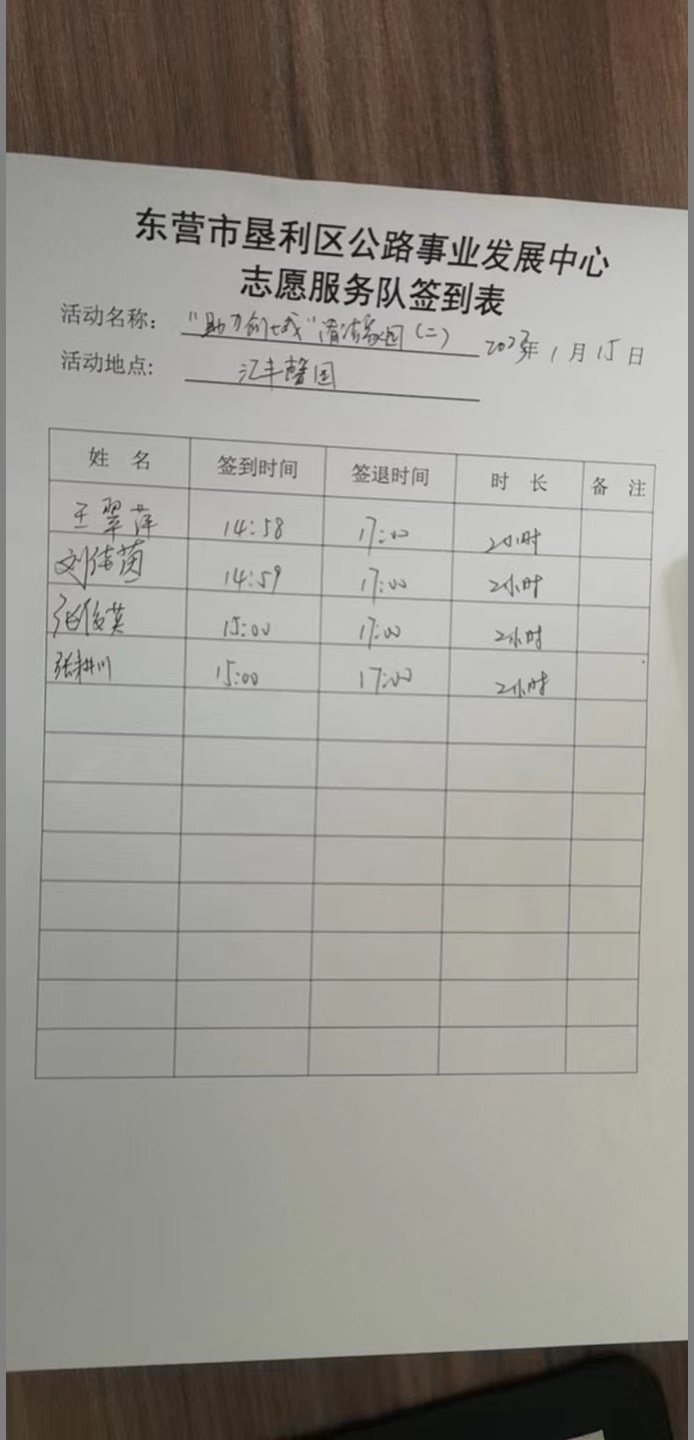 东营市垦利区公路事业发展中心
志愿服务队签到表
活动名称: "助力创城"清洁家园(二) 2023年1月15日
活动地点: 汇丰馨园
姓 名 签到时间 签退时间 时 长 备 注
王翠萍 14:58 17:00 2小时
刘倩茵 14:59 17:00 2小时
张俊英 15:00 17:00 2小时
张耕川 15:00 17:00 2小时